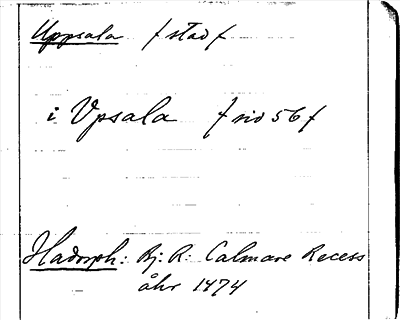 Uppsala /stad/
i Vpsala /sid 56/
Hadorph: Bj: R: Calmare Recess
åhr 1474